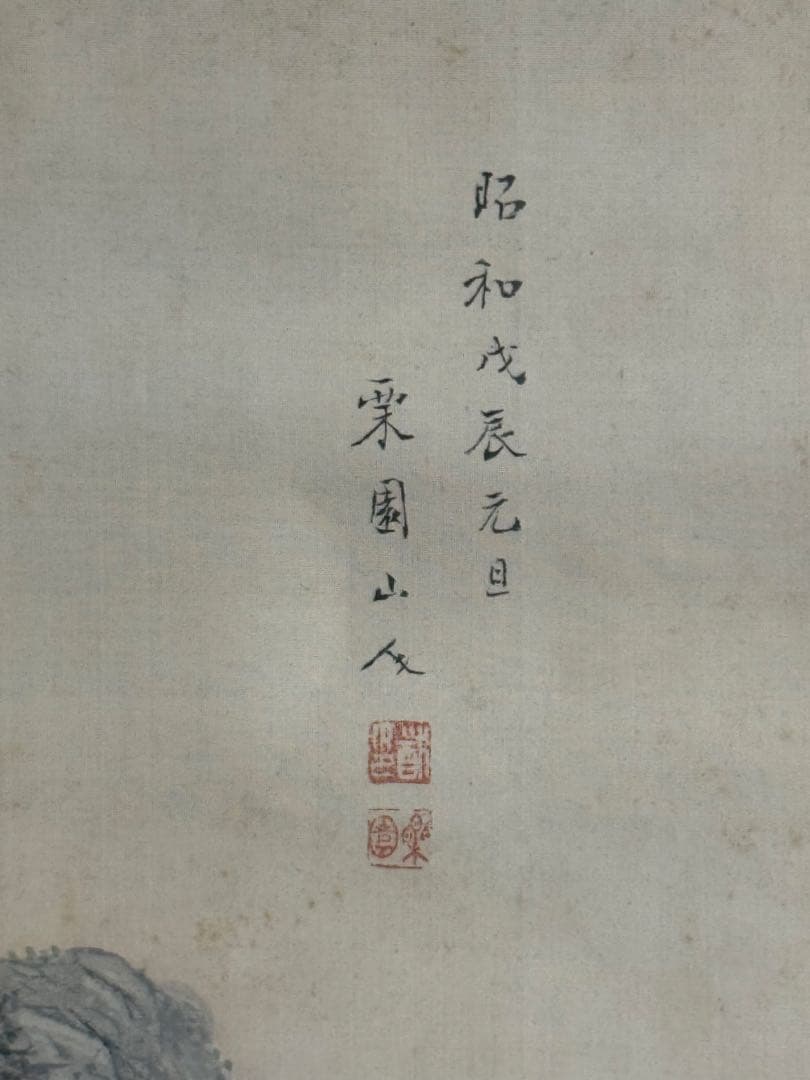 昭和戊辰元旦
栗園山人
栗園